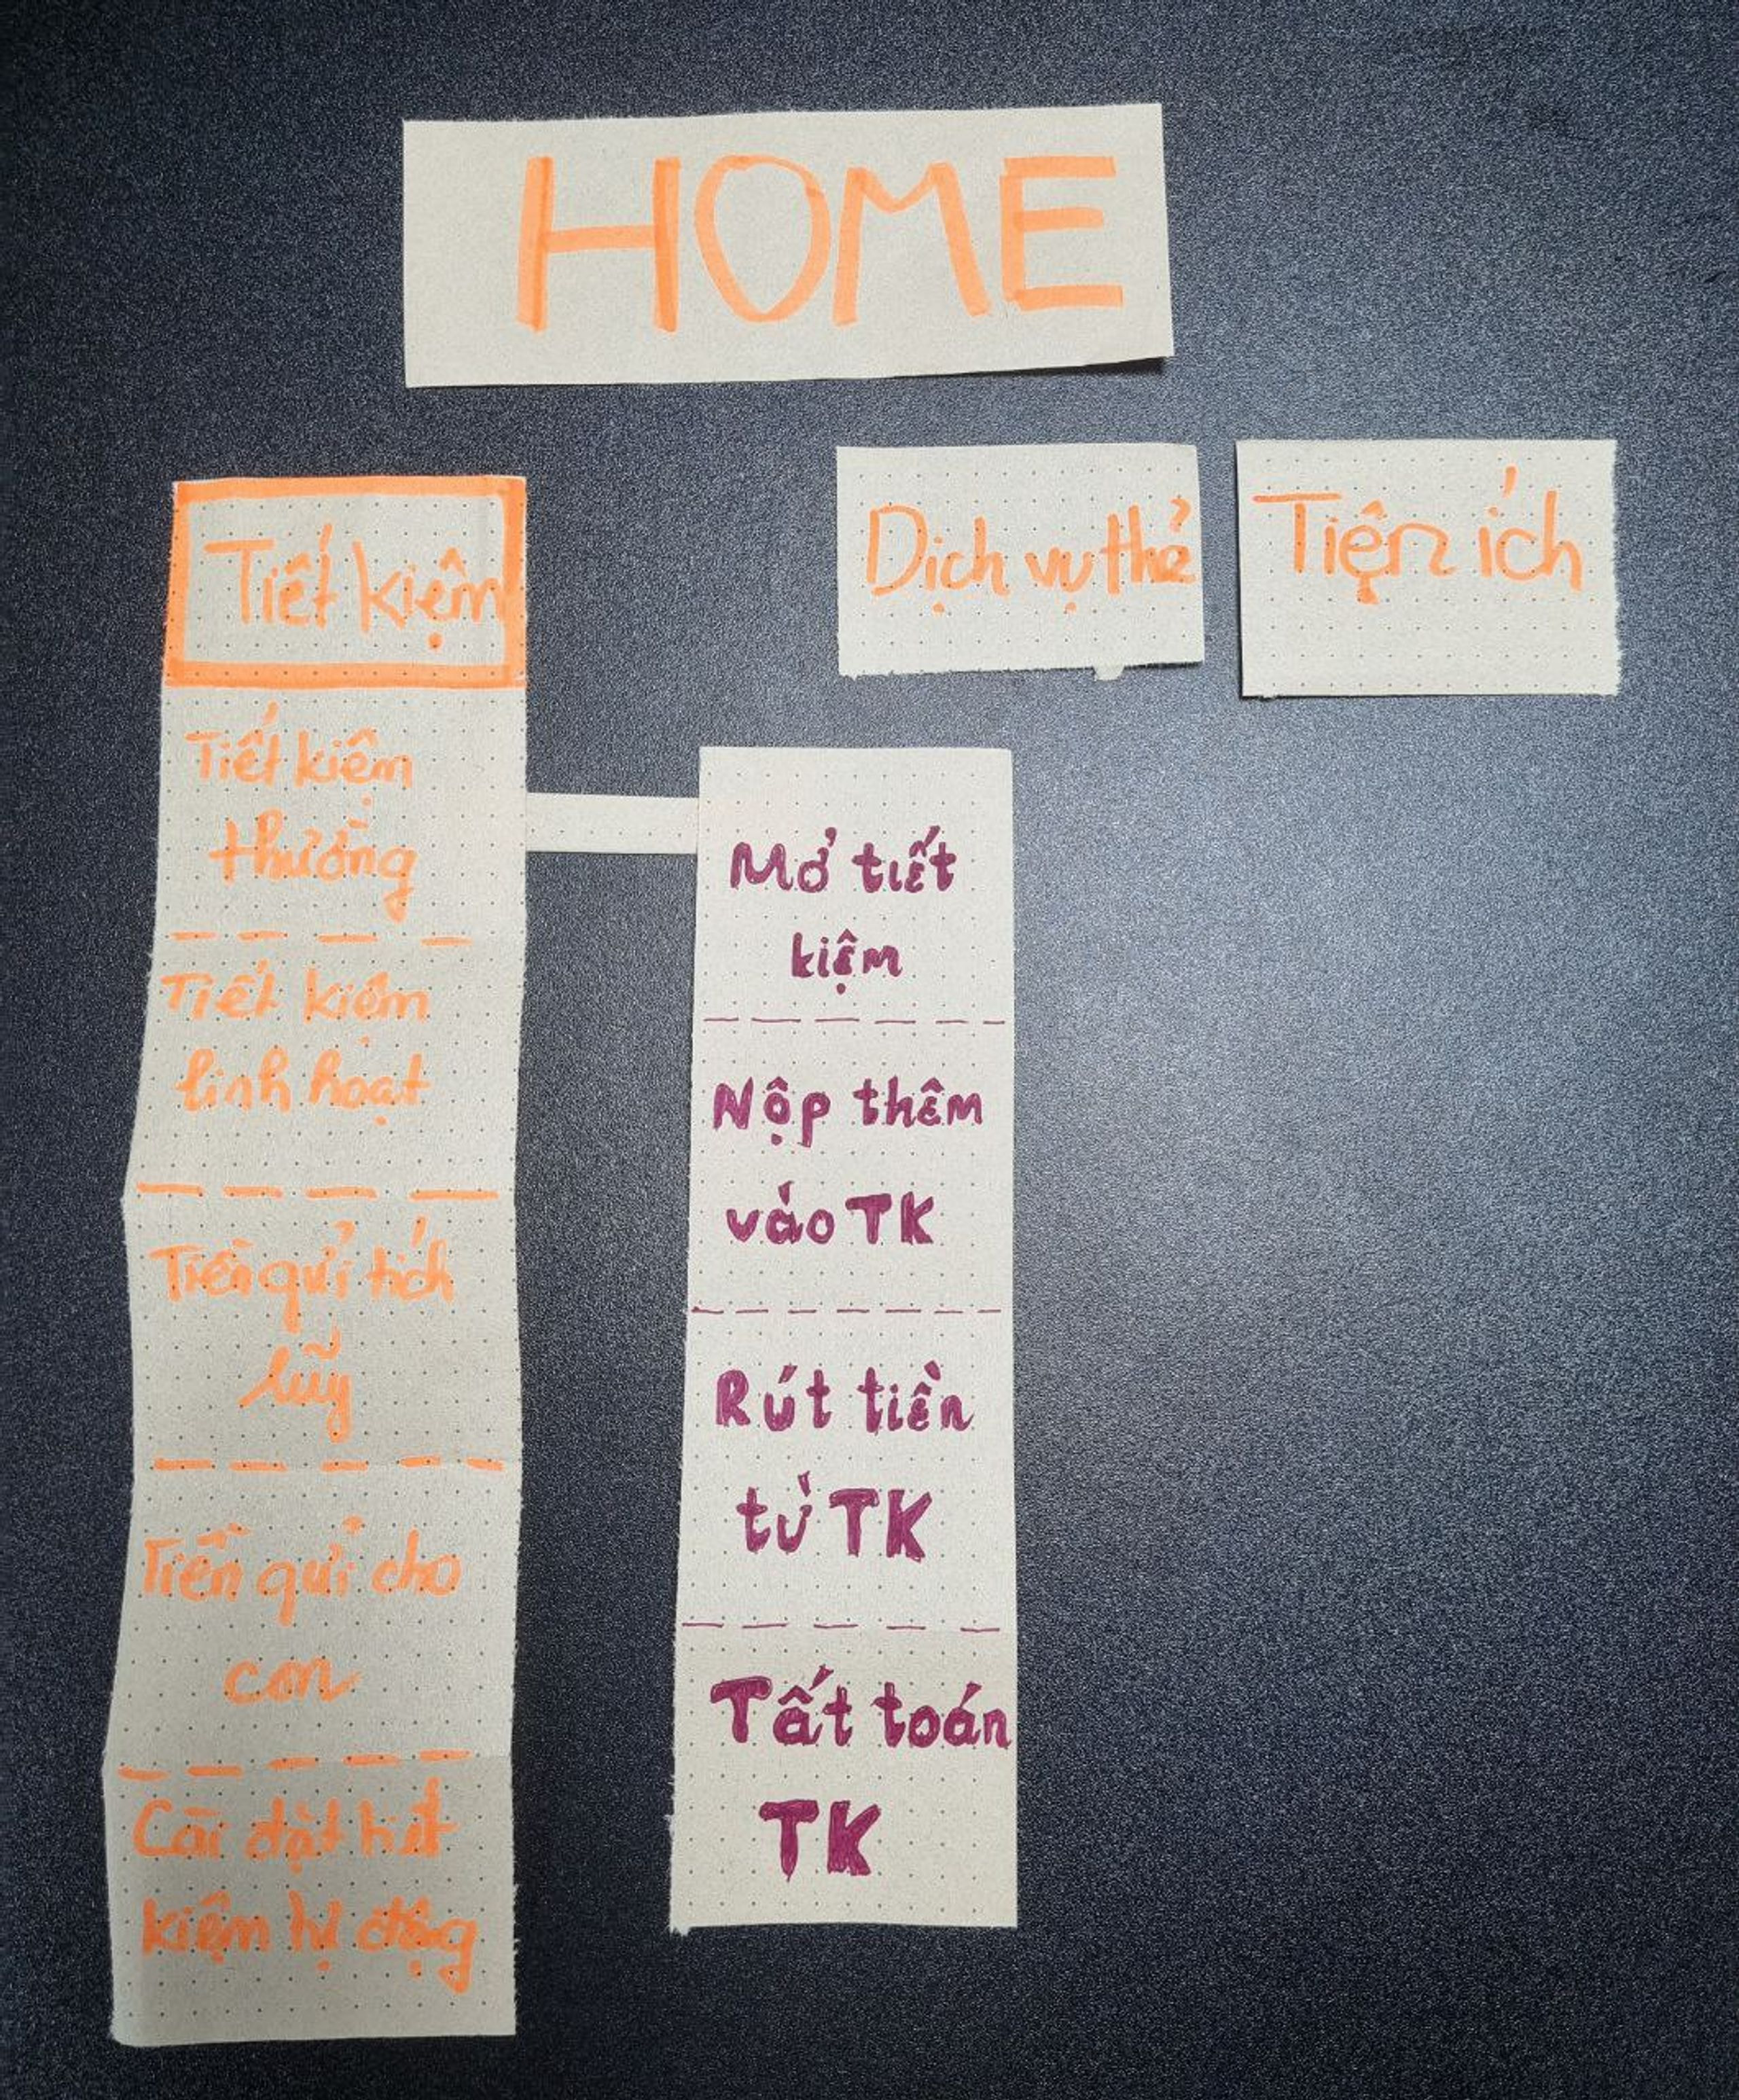 HOME
Tiết kiệm
Dịch vụ thẻ
Tiện ích
Tiết kiệm
thường
Tiết kiệm
linh hoạt
Tiền gửi tích
lũy
Tiền gửi cho
con
Cài đặt tiết
kiệm tự động
Mở tiết
kiệm
Nộp thêm
vào TK
Rút tiền
từ TK
Tất toán
TK